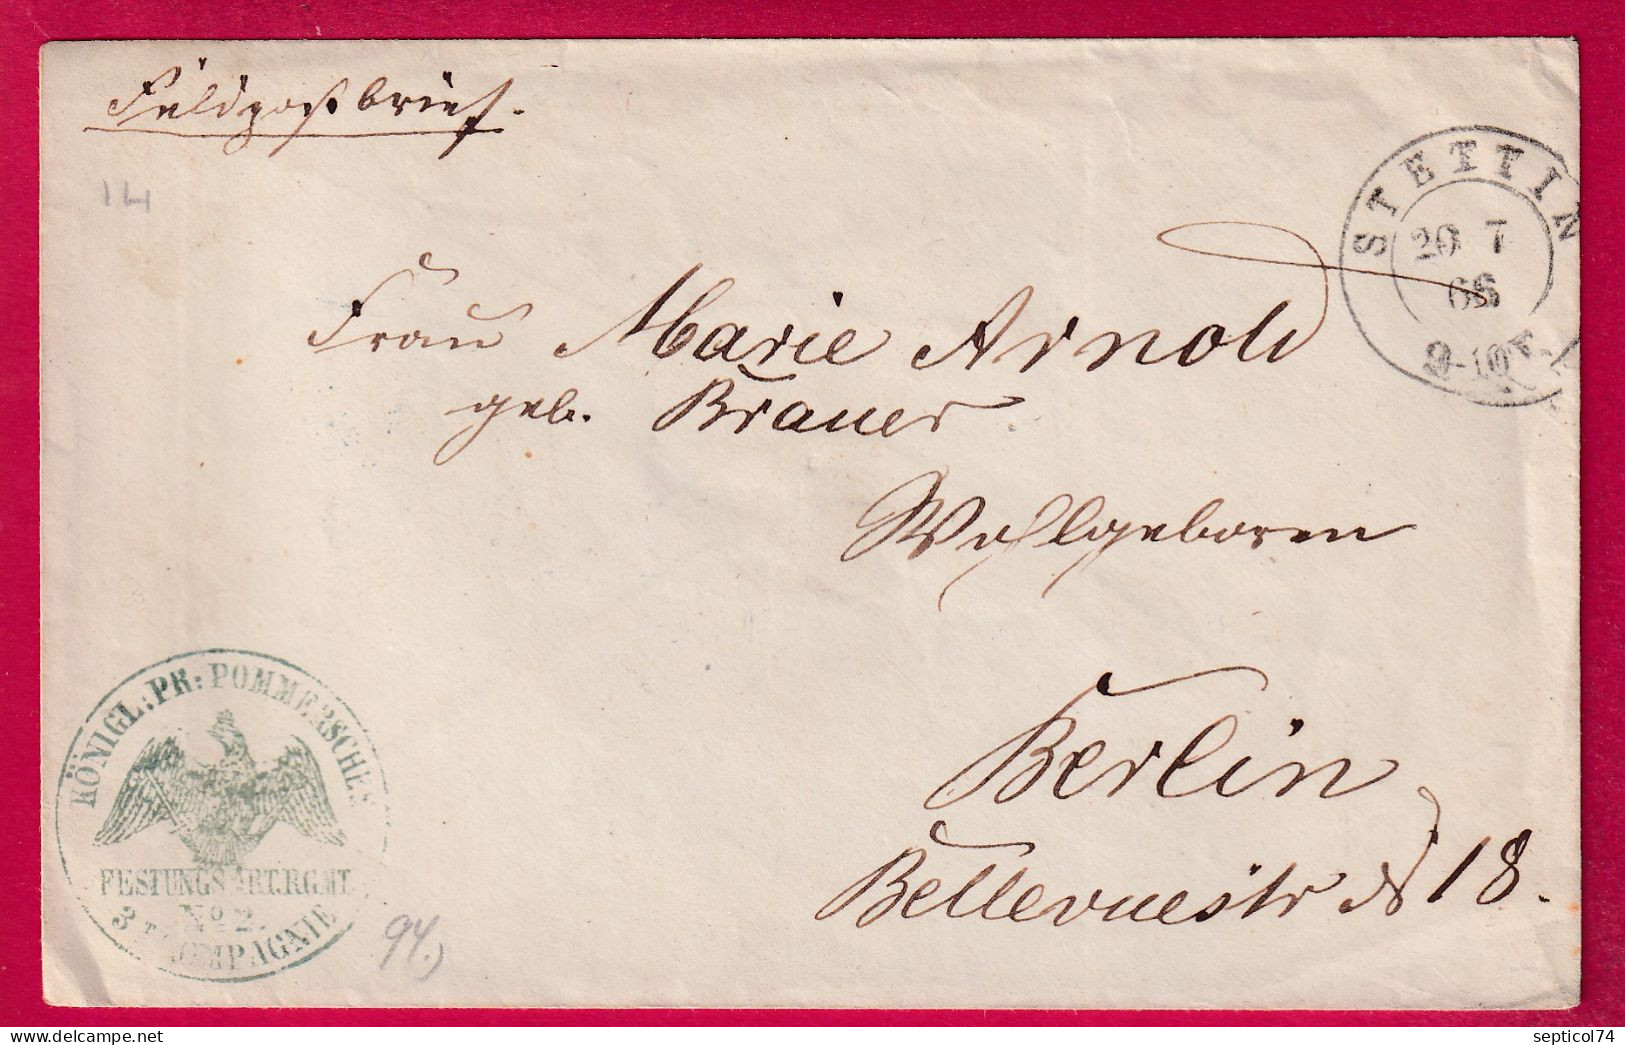 Feldpostbrief.
14
STETTIN
20 7
66
9-10 V.
Frau Marie Arnold
geb. Brauer
Wohlgeboren
Berlin
Bellevuestr № 18.
KÖNIGL: PR: POMMERSCHES
FESTUNGS ART. RGMT.
No 2.
3TE COMPAGNIE
94.)
delcampe.net
septicol74